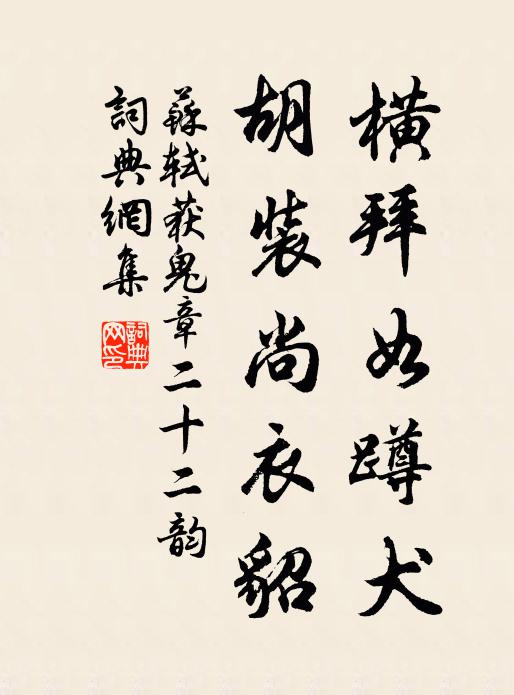 橫拜如蹲犬
胡裝尚衣貂
蘇軾獲鬼章二十二韵
詞典網集
詞典
网印